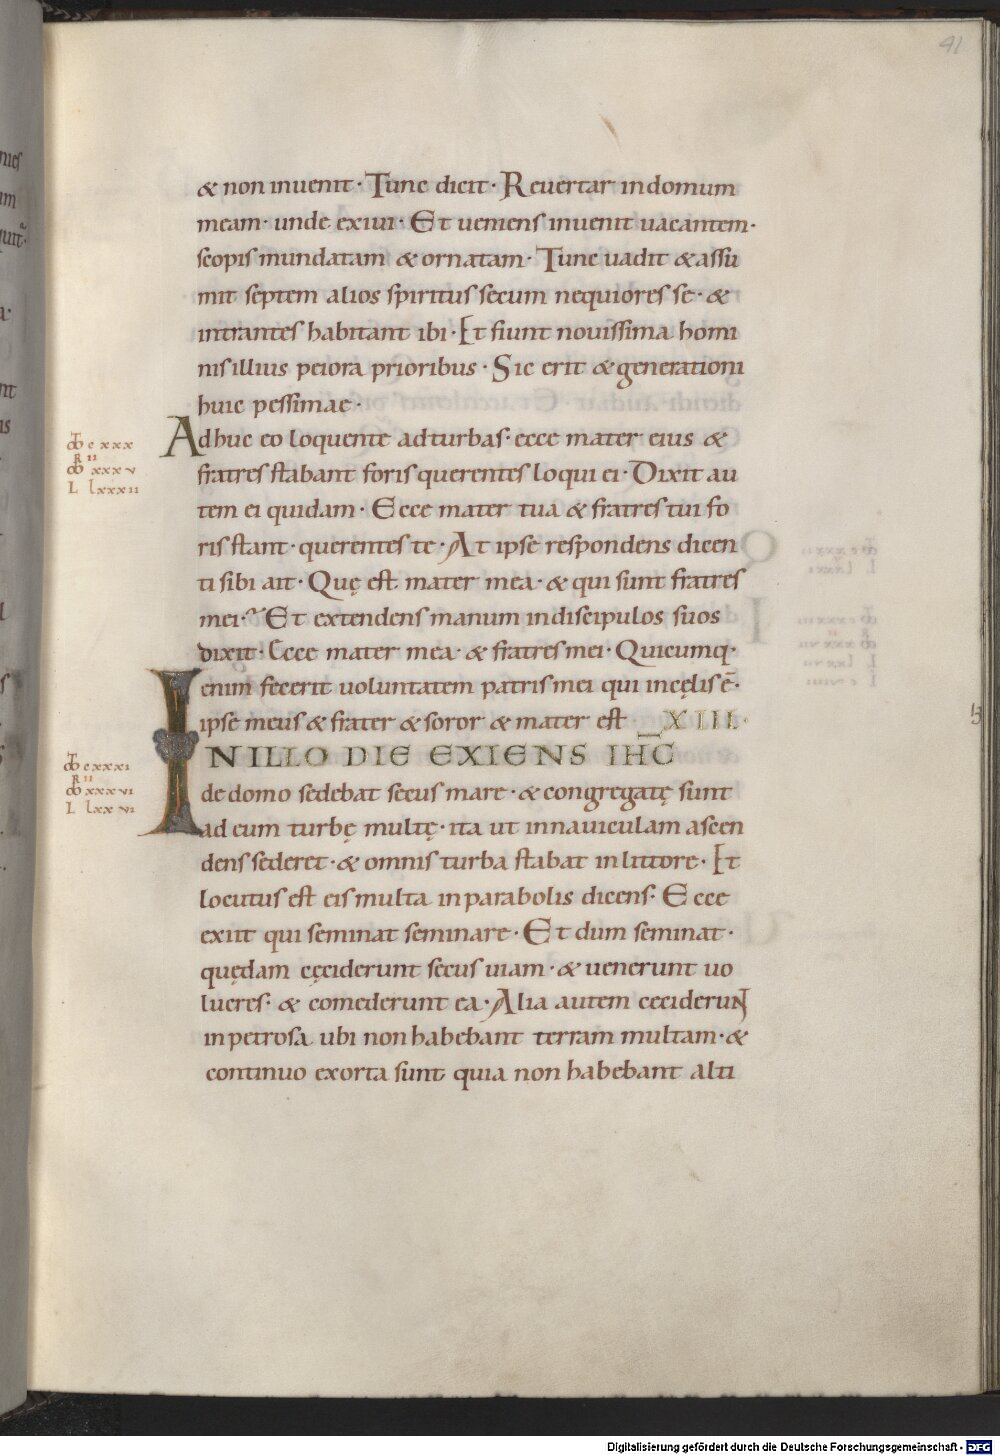 41
& non inuenit· Tunc dicit· Reuertar indomum
meam· unde exiui· Et ueniens inuenit uacantem·
scopis mundatam & ornatam· Tunc uadit & assu
mit septem alios spiritus secum nequiores se· &
intrantes habitant ibi· Et fiunt nouissima homi
nis illius peiora prioribus· Sic erit & generationi
huic pessimae·
Adhuc eo loquente ad turbas· ecce mater eius &
fratres stabant foris querentes loqui ei· Dixit au
tem ei quidam· Ecce mater tua & fratres tui fo
ris stant· querentes te· At ipse respondens dicen
ti sibi ait· Quę est mater mea· & qui sunt fratres
mei·? Et extendens manum in discipulos suos
dixit· Ecce mater mea· & fratres mei· Quicumq·
enim fecerit uoluntatem patris mei qui incęlis ē·
ipse meus & frater & soror & mater est XIII·
INILLO DIE EXIENS IHC̄
de domo sedebat secus mare· & congregatę sunt
ad eum turbę multę· ita ut in nauiculam ascen
dens sederet· & omnis turba stabat in littore· Et
locutus est eis multa in parabolis dicens· Ecce
exiit qui seminat seminare· Et dum seminat·
quędam cęciderunt secus uiam· & uenerunt uo
lucres· & comederunt ea· Alia autem ceciderunt
in petrosa ubi non habebant terram multam· &
continuo exorta sunt quia non habebant alti
c xxx
R II
xxxv
L lxxxII
c xxxI
R II
xxxvI
L lxxvI
Digitalisierung gefördert durch die Deutsche Forschungsgemeinschaft - DFG